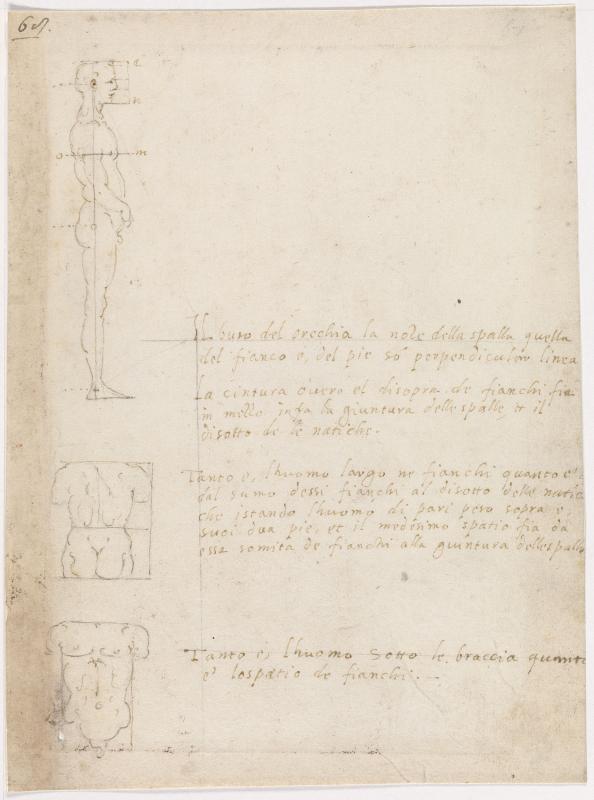 68.
a
n
o m
Il buso del orechia la noce della spalla quella
del fianco e, del pie so' perpendicular linea
La cintura overo el disopra de fianchi fia
in mezzo infa la giuntura delle spalle, et il
disotto de le natiche.
Tanto e, lhuomo largo ne fianchi quanto e'
dal sumo dessi fianchi al disotto delle natic
che istando lhuomo di pari peso sopra e,
suoi dua pie, et il medesimo spatio fia da
essa somità de fianchi alla giuntura delle spalle
Tanto e, lhuomo sotto le braccia quanto
e' lo spatio de fianchi.